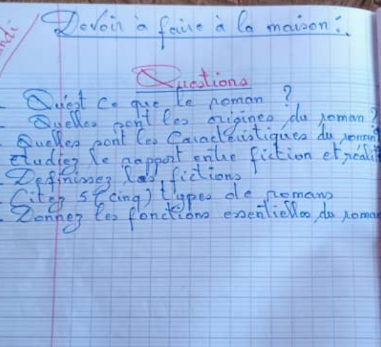 Devoir à faire à la maison :
Questions
- Qu'est ce que le roman ?
- Quelles sont les origines du roman ?
- Quelles sont les caractéristiques du roman
- étudiez le rapport entre fiction et réalit
- Définissez les fictions
- Citez 5 (cinq) types de romans
- Donnez les fonctions essentielles du roma